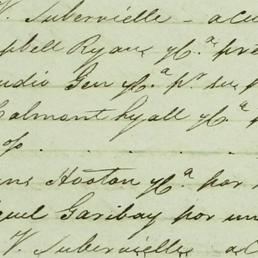 V. Subervielle – acu
pbell Ryan y C.a pre
udio Gen y C.a pr su p
Calmont Lyall y C.a p
op. . . . . .
ns Hooton y C.a por
guel Garibay por un
V. Subervielle ac